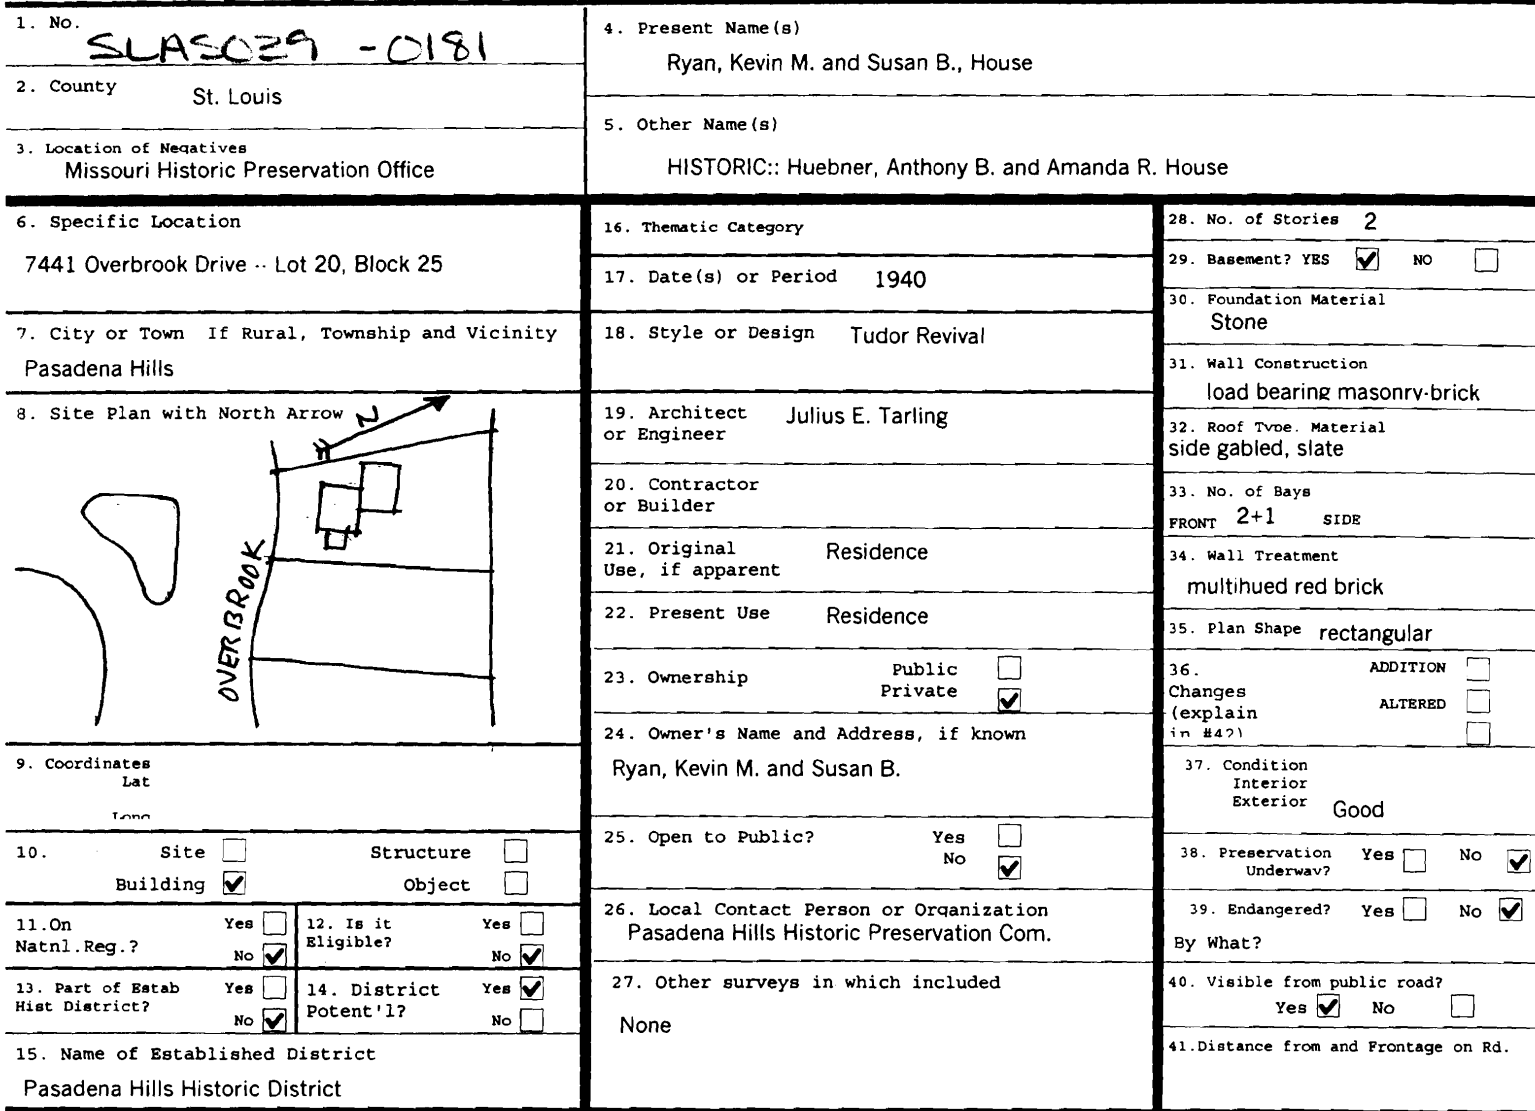 1. No.
SLAS029 -0181
2. County
St. Louis
3. Location of Negatives
Missouri Historic Preservation Office
4. Present Name(s)
Ryan, Kevin M. and Susan B., House
5. Other Name(s)
HISTORIC:: Huebner, Anthony B. and Amanda R. House
6. Specific Location
7441 Overbrook Drive -- Lot 20, Block 25
7. City or Town If Rural, Township and Vicinity
Pasadena Hills
8. Site Plan with North Arrow
N
OVERBROOK
9. Coordinates
Lat
Long
10. Site Structure
Building Object
11.On Yes
Natnl.Reg.?
No
12. Is it Yes
Eligible?
No
13. Part of Estab Yes
Hist District?
No
14. District Yes
Potent'l?
No
15. Name of Established District
Pasadena Hills Historic District
16. Thematic Category
17. Date(s) or Period 1940
18. Style or Design Tudor Revival
19. Architect Julius E. Tarling
or Engineer
20. Contractor
or Builder
21. Original Residence
Use, if apparent
22. Present Use Residence
23. Ownership Public
Private
24. Owner's Name and Address, if known
Ryan, Kevin M. and Susan B.
25. Open to Public? Yes
No
26. Local Contact Person or Organization
Pasadena Hills Historic Preservation Com.
27. Other surveys in which included
None
28. No. of Stories 2
29. Basement? YES NO
30. Foundation Material
Stone
31. Wall Construction
load bearing masonry-brick
32. Roof Type. Material
side gabled, slate
33. No. of Bays
FRONT 2+1 SIDE
34. Wall Treatment
multihued red brick
35. Plan Shape rectangular
36. ADDITION
Changes
(explain ALTERED
in #42)
37. Condition
Interior
Exterior Good
38. Preservation Yes No
Underway?
39. Endangered? Yes No
By What?
40. Visible from public road?
Yes No
41.Distance from and Frontage on Rd.